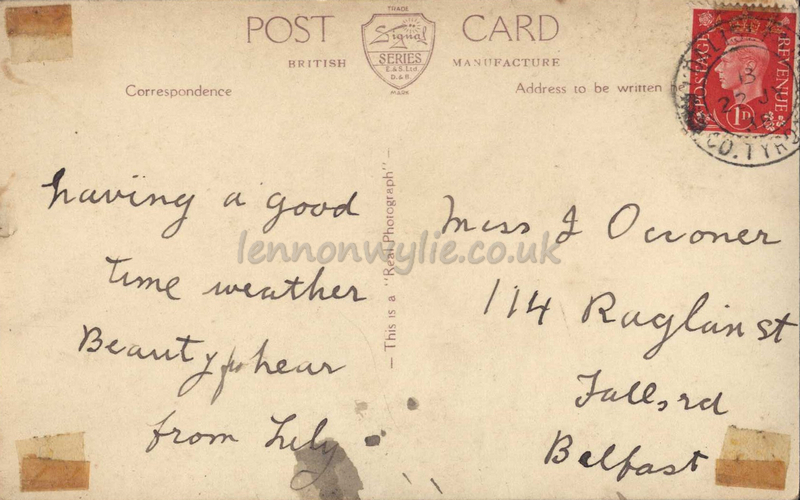 TRADE
POST CARD
Signal
SERIES
E.&S. Ltd
D.&B.
MARK
BRITISH MANUFACTURE
Correspondence
Address to be written
POSTAGE
REVENUE
1D
CO. TYR
having a good
time weather
Beauty hear
from Lily
— This is a "Real Photograph" —
Miss J Occoner
114 Raglan st
Falls rd
Belfast
lennonwylie.co.uk